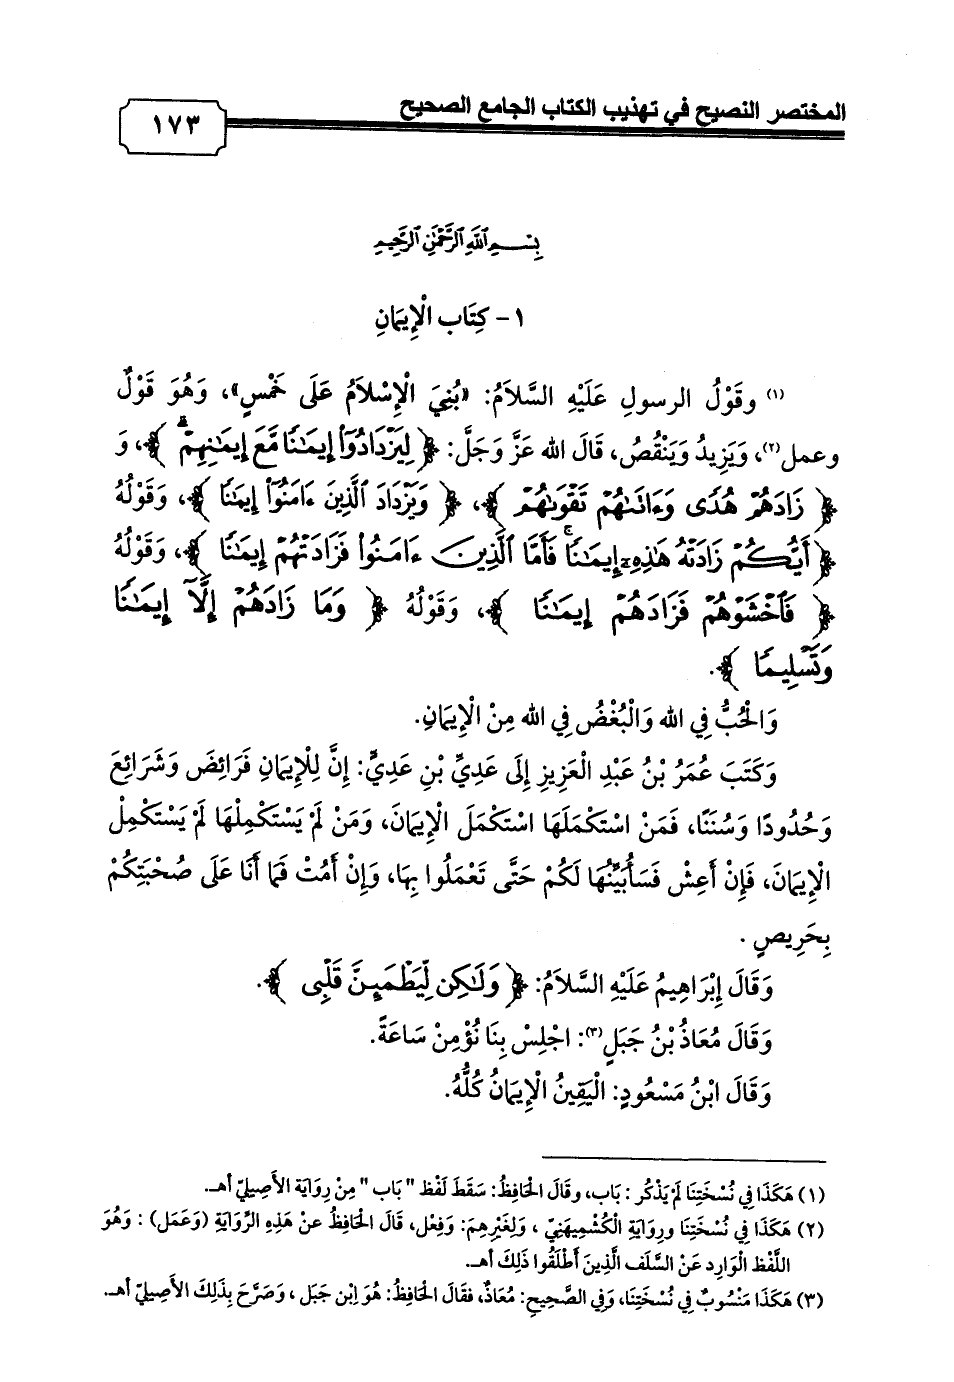 المختصر النصيح في تهذيب الكتاب الجامع الصحيح
١٧٣
بِسْمِ اللهِ الرَّحْمَنِ الرَّحِيمِ
١- كِتَاب الْإِيمَانِ
(١) وقَوْلُ الرسولِ عَلَيْهِ السَّلَامُ: «بُنِيَ الْإِسْلَامُ عَلَى خَمْسٍ»، وَهُوَ قَوْلٌ
وعمل(٢)، وَيَزِيدُ وَيَنْقُصُ، قَالَ الله عَزَّ وَجَلَّ: ﴿لِيَزْدَادُوٓا۟ إِيمَٰنًا مَّعَ إِيمَٰنِهِمْ ۗ﴾، وَ
﴿ زَادَهُمْ هُدًى وَءَاتَىٰهُمْ تَقْوَىٰهُمْ ﴾، ﴿ وَيَزْدَادَ ٱلَّذِينَ ءَامَنُوٓا۟ إِيمَٰنًا ﴾، وَقَوْلُهُ
﴿ أَيُّكُمْ زَادَتْهُ هَٰذِهِۦٓ إِيمَٰنًا ۚ فَأَمَّا ٱلَّذِينَ ءَامَنُوا۟ فَزَادَتْهُمْ إِيمَٰنًا ﴾، وَقَوْلُهُ
﴿ فَٱخْشَوْهُمْ فَزَادَهُمْ إِيمَٰنًا ﴾، وَقَوْلُهُ ﴿ وَمَا زَادَهُمْ إِلَّآ إِيمَٰنًا
وَتَسْلِيمًا ﴾.
وَالْحُبُّ فِي الله وَالْبُغْضُ فِي الله مِنْ الْإِيمَانِ.
وَكَتَبَ عُمَرُ بْنُ عَبْدِ الْعَزِيزِ إِلَى عَدِيِّ بْنِ عَدِيٍّ: إِنَّ لِلْإِيمَانِ فَرَائِضَ وَشَرَائِعَ
وَحُدُودًا وَسُنَنًا، فَمَنْ اسْتَكْمَلَهَا اسْتَكْمَلَ الْإِيمَانَ، وَمَنْ لَمْ يَسْتَكْمِلْهَا لَمْ يَسْتَكْمِلْ
الْإِيمَانَ، فَإِنْ أَعِشْ فَسَأُبَيِّنُهَا لَكُمْ حَتَّى تَعْمَلُوا بِهَا، وَإِنْ أَمُتْ فَمَا أَنَا عَلَى صُحْبَتِكُمْ
بِحَرِيصٍ .
وَقَالَ إِبْرَاهِيمُ عَلَيْهِ السَّلَامُ: ﴿ وَلَٰكِن لِّيَطْمَئِنَّ قَلْبِى ﴾.
وَقَالَ مُعَاذُ بْنُ جَبَلٍ(٣): اجْلِسْ بِنَا نُؤْمِنْ سَاعَةً.
وَقَالَ ابْنُ مَسْعُودٍ: الْيَقِينُ الْإِيمَانُ كُلُّهُ.
(١) هَكَذَا فِي نُسْخَتِنَا لَمْ يَذْكُر : بَاب، وقَالَ الْحَافِظُ: سَقَطَ لَفْظ " بَاب " مِنْ رِوَايَة الأَصِيلِيّ أهـ.
(٢) هَكَذَا فِي نُسْخَتِنَا ورِوَايَةِ الْكُشْمِيهَنِيّ ، وَلِغَيْرِهِمَ: وَفِعْل، قَالَ الْحَافِظُ عنْ هَذِهِ الرِّوَايَةِ (وَعَمَل) : وَهُوَ
اللَّفْظ الْوَارِد عَنْ السَّلَف الَّذِينَ أَطْلَقُوا ذَلِكَ أهـ.
(٣) هَكَذَا مَنْسُوبٌ فِي نُسْخَتِنَا، وَفِي الصَّحِيحِ: مُعَاذٌ، فقَالَ الْحَافِظُ: هُوَ اِبْن جَبَل ، وَصَرَّحَ بِذَلِكَ الأَصِيلِيّ أهـ.